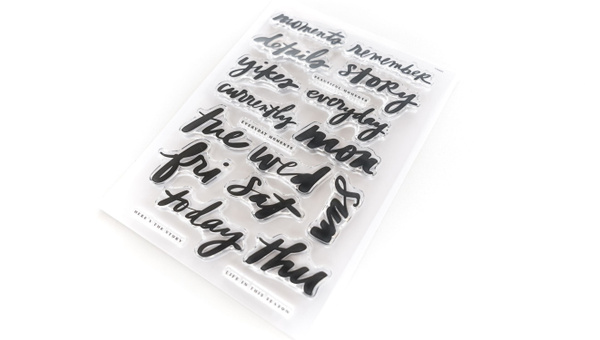 moments remember
details story
BEAUTIFUL MOMENTS
yikes everyday
currently mon
EVERYDAY MOMENTS
tue wed
sun
fri sat
today thu
HERE'S THE STORY
LIFE IN THIS SEASON